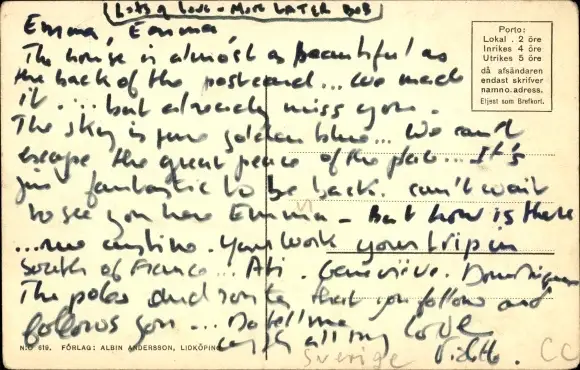 Lots of Love - More LATER BOB
Emma, Emma,
The house is almost as beautiful as
the back of the postcard... We made
it.... but already miss you.
The sky is pure golden blue... We can't
escape the great peace of the place... It's
just fantastic to be back. Can't wait
to see you here Emma - But how is there
... Your work your trip in
South of France... Genevieve. Dominique
The poles and that you follow and
follows you... Do tell me
with all my love
Porto:
Lokal . 2 öre
Inrikes 4 öre
Utrikes 5 öre
då afsändaren
endast skrifver
namn o. adress.
Eljest som Brefkort.
N:O 619. FÖRLAG: ALBIN ANDERSSON, LIDKÖPING
Sverige
CC